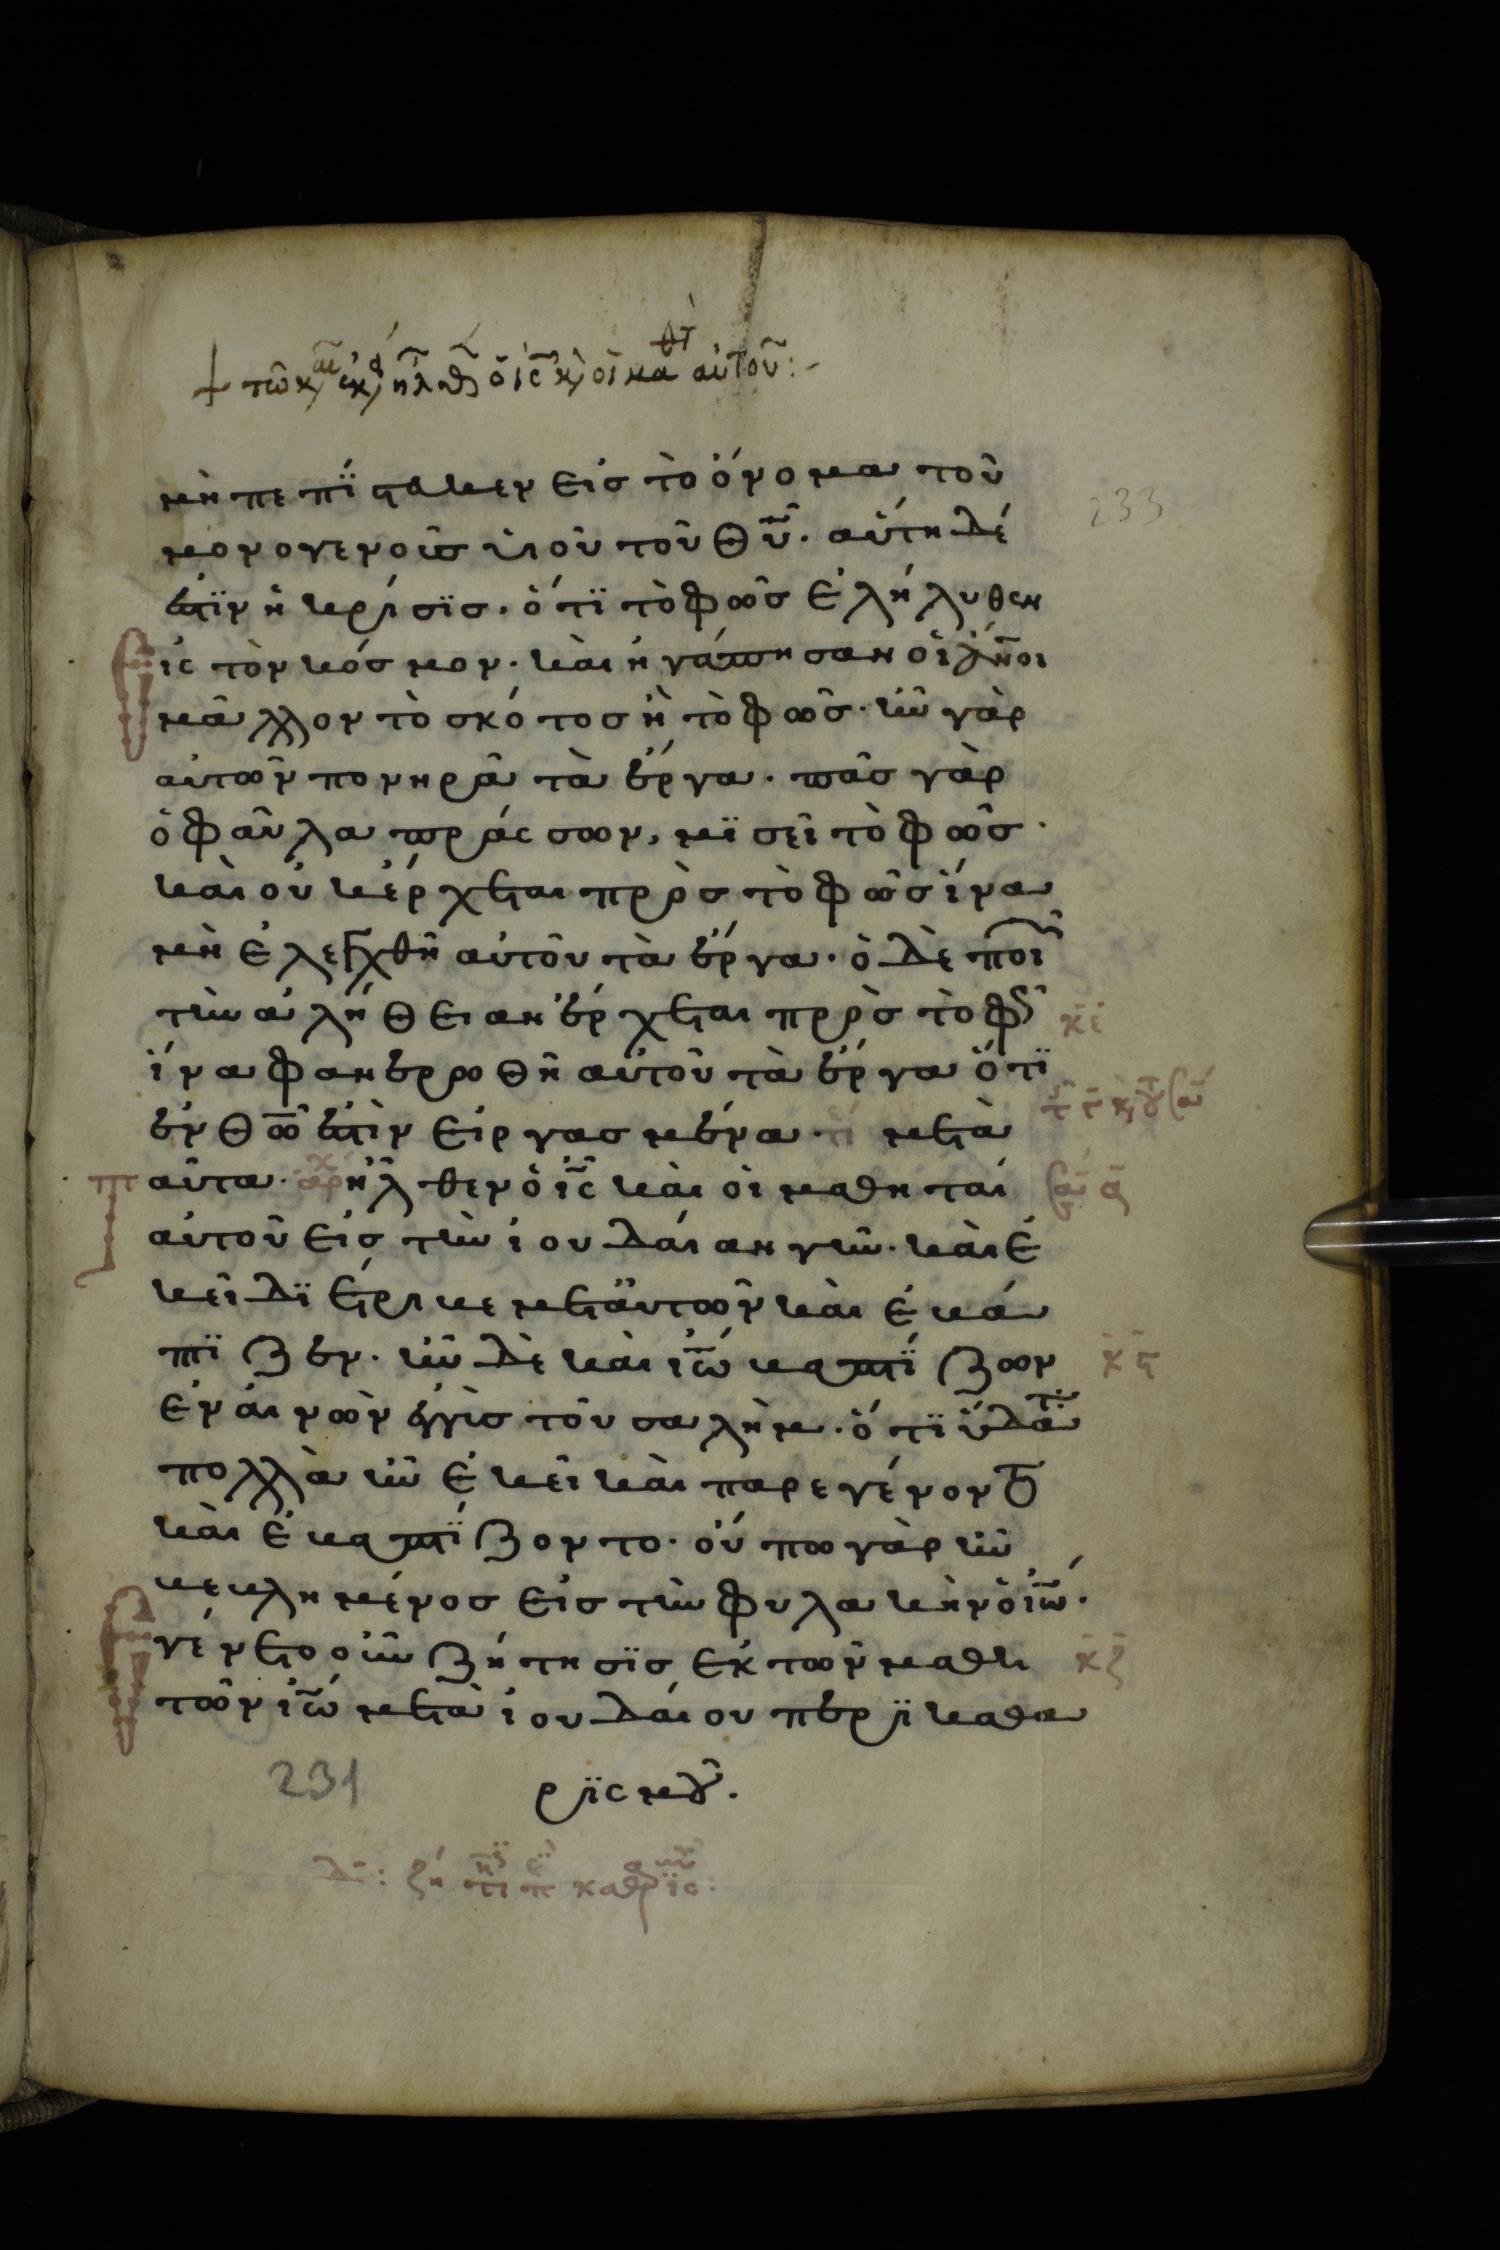 + τῶ κ/αι ἐκ/ ἦλθ ὁ ισ κ/ οἱ μαθτ αὐτοῦ:-
μὴ πεπίστευκεν εἰς τὸ ὄνομα τοῦ
μονογενοῦς υἱοῦ τοῦ θυ· αὕτη δέ
ἐστϊν ἡ κρίσϊς· ὅτϊ τὸ φῶς ἐλήλυθεν
εἰς τὸν κόσμον· καὶ ἠγάπησαν οἱ ἄνοι
μᾶλλον τὸ σκότος ἢ τὸ φῶς· ἦν γὰρ
αὐτῶν πονηρὰ τὰ ἔργα· πᾶς γὰρ
ὁ φαῦλα πράσσων, μϊσεῖ τὸ φῶς·
καὶ οὐκ ἔρχεται πρὸς τὸ φῶς ἵνα
μὴ ἐλεγχθῆ αὐτοῦ τὰ ἔργα· ὁ δὲ ποι
τὴν ἀλήθειαν ἔρχεται πρὸς τὸ φ
ἵνα φανερωθῆ αὐτοῦ τὰ ἔργα ὅτϊ
ἐν θω ἐστὶν εἰργασμένα· μετὰ
ταῦτα· ἦλθεν ὁ ις καὶ οἱ μαθηταὶ
αὐτοῦ εἰς τὴν ἰουδαίαν γῆν· καὶ ἐ
κεῖ δϊέτριβε μετ αὐτῶν καὶ ἐβά
πτϊζεν· ἦν δὲ καὶ ιω βαπτίζων
ἐν αἰνὼν ἐγγὺς τοῦ σαλὴμ· ὅτϊ ὕδατ
πολλὰ ἦν ἐκεῖ καὶ παρεγένοντο
καὶ ἐβαπτίζοντο· οὔπω γὰρ ἦν
βεβλημένος εἰς τὴν φυλακὴν ὁ ιω·
ἐγένετο οὖν ζήτησϊς ἐκ τῶν μαθη
τῶν ιω μετὰ ἰουδαίου περὶ καθα
ρϊσμοῦ.
233
κε
κς
κζ
231